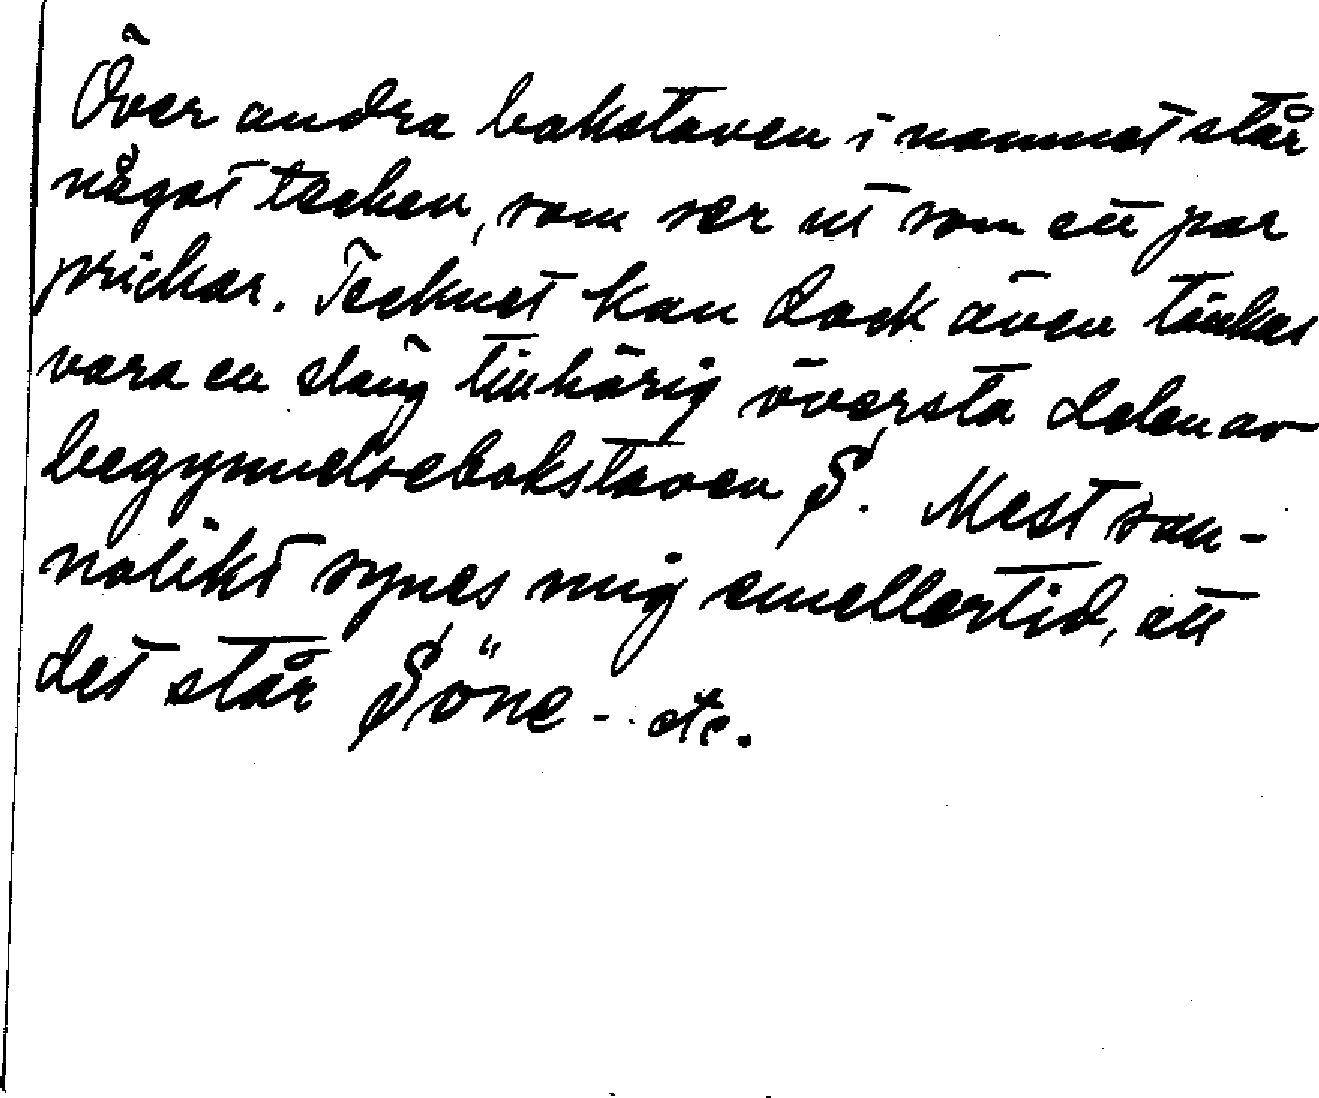 Över andra bokstaven i namnet står
något tecken, som ser ut som ett par
prickar. Tecknet kan dock även tänkas
vara en släng tillhörig översta delen av
begynnelsebokstaven S. Mest san-
nolikt synes mig emellertid, att
det står Söne - etc.